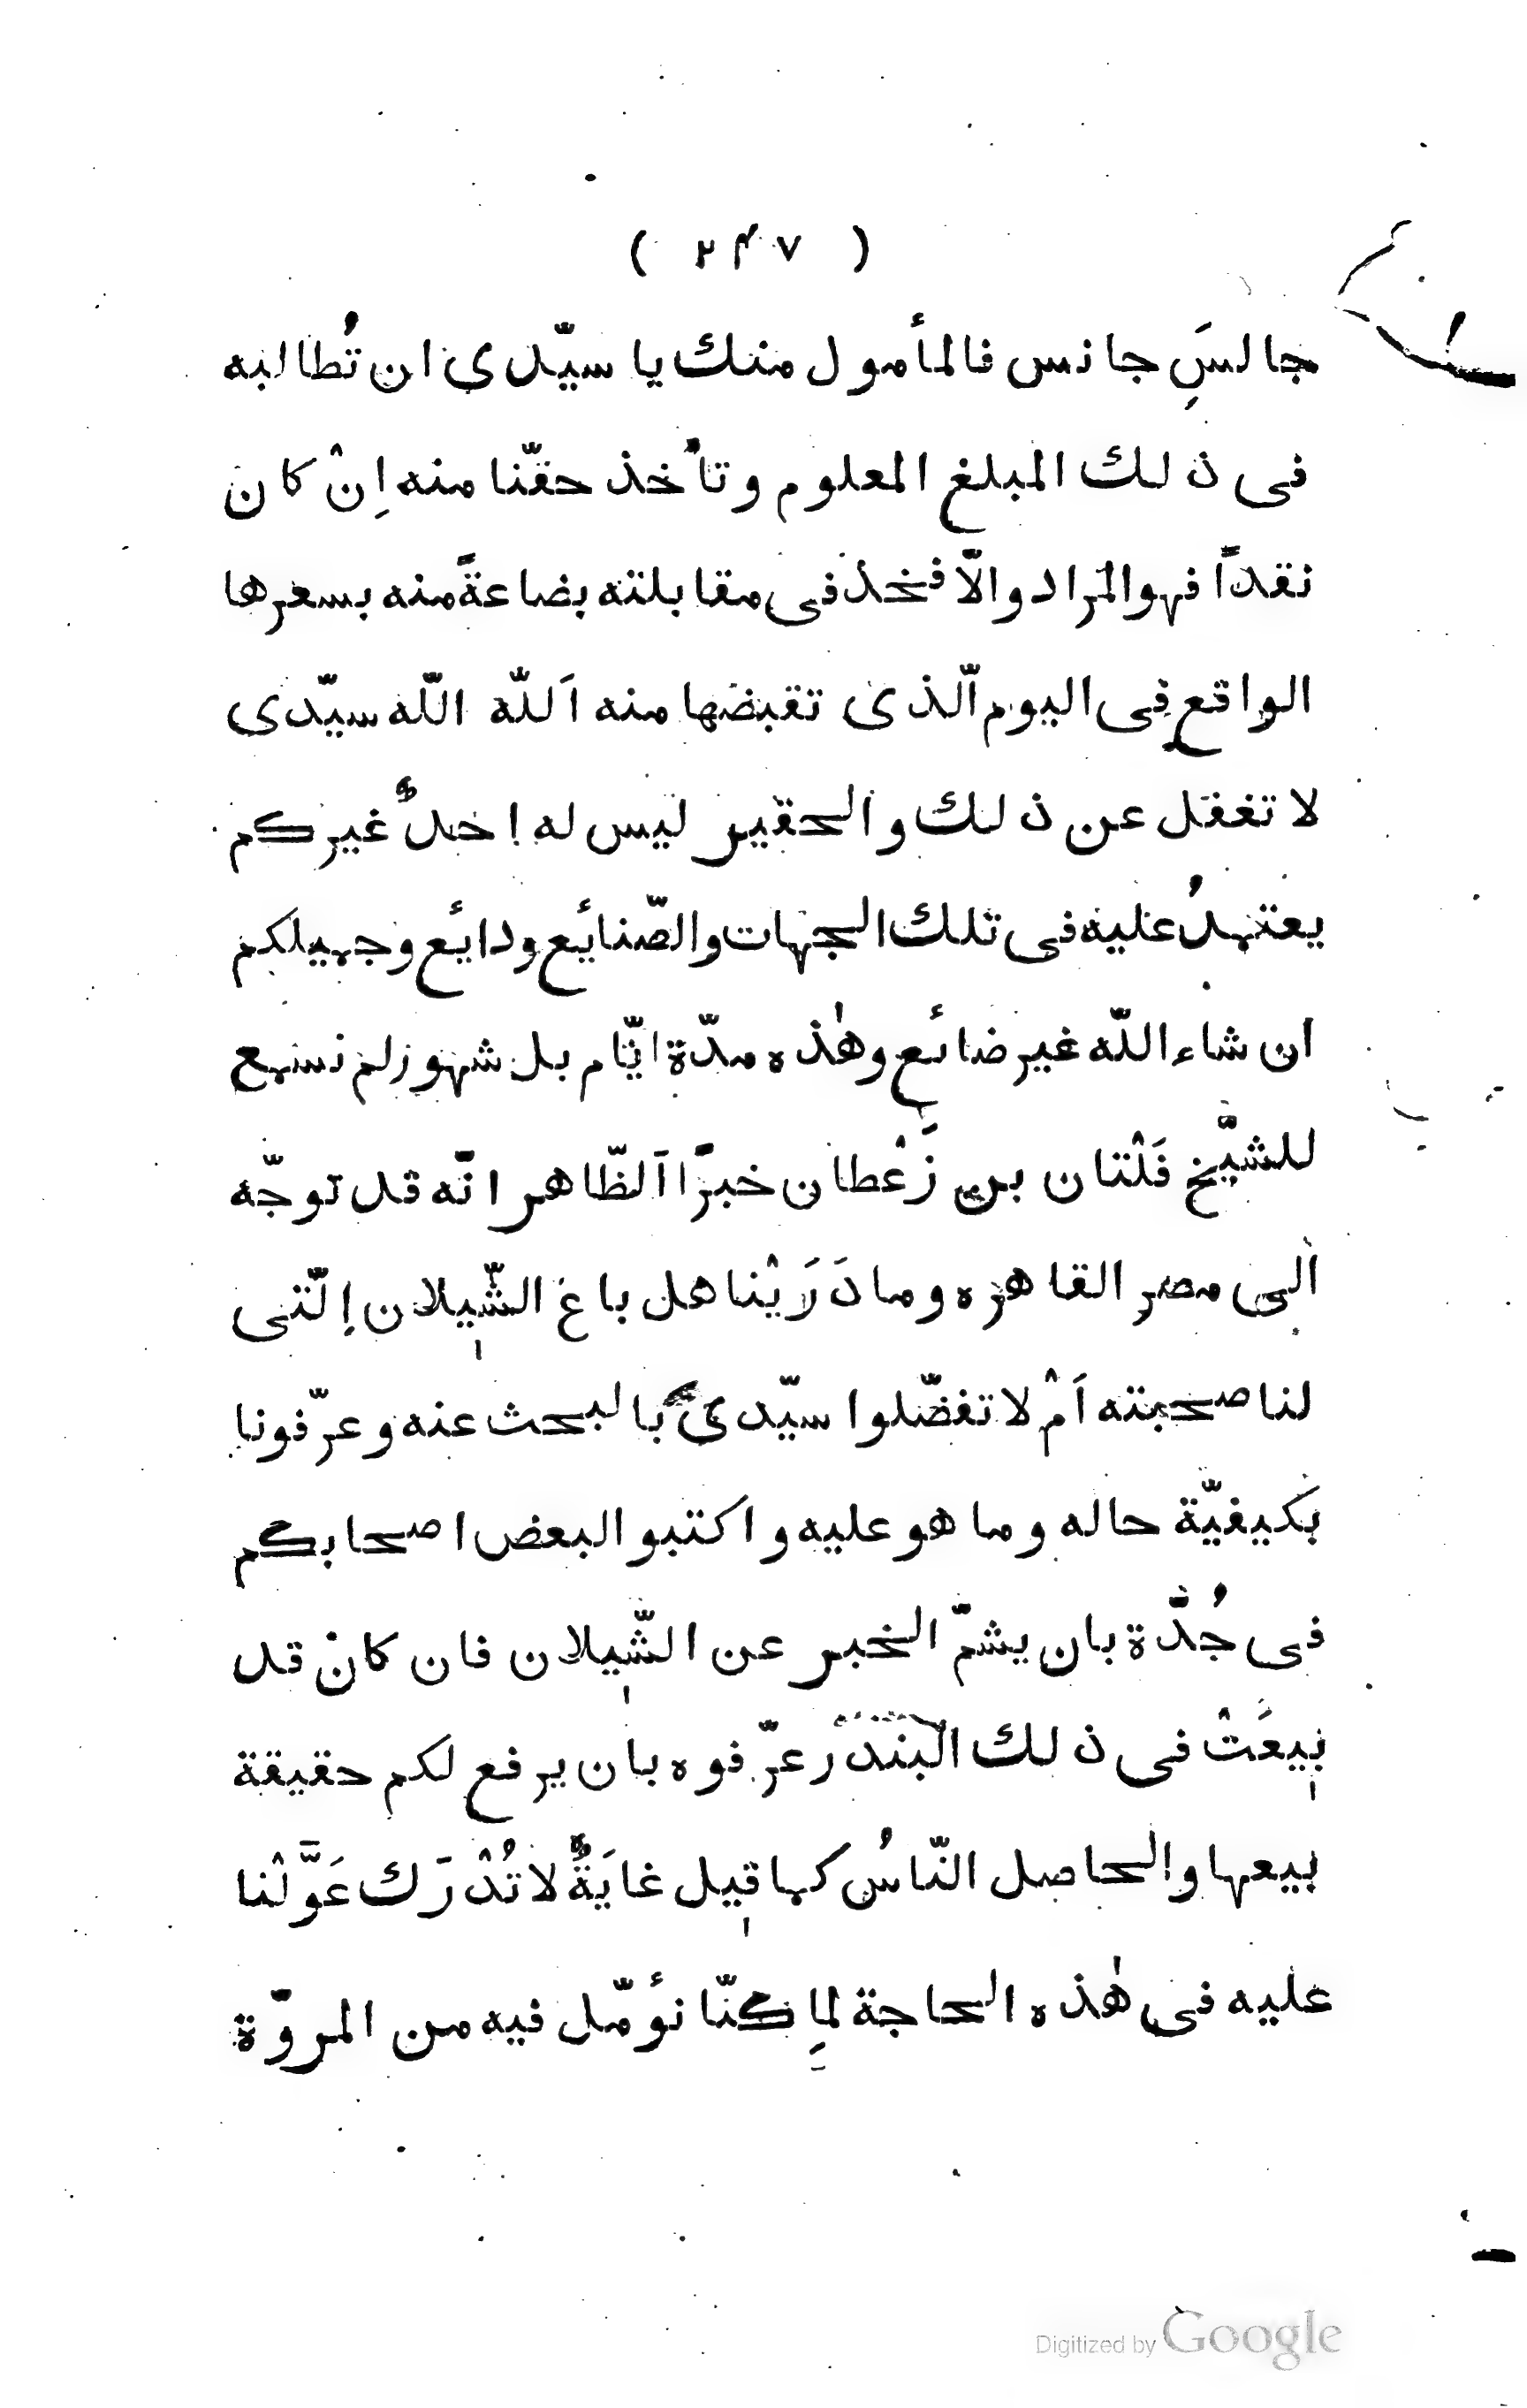 ( ٢٤٧ )
جالسَِ جانس فالمأمول منك يا سيّدى ان تُطالبه
فى ذلك المبلغ المعلوم وتأخذ حقّنا منه اِنْ كان
نقداً فهو المراد والّا فخذ فى مقابلته بضاعةً منه بسعرها
الواقع فى اليوم الّذى تقبضها منه اَللّه اللّه سيّدى
لا تغفل عن ذلك والحقير ليس له احدٌ غيركم
يعتمدُ عليه فى تلك الجهات والصّنائع ودائع وجميلكم
ان شاء اللّه غير ضائع وهٰذه مدّة ايّام بل شهور لم نسمع
للشّيخ فَلْتان بن زَعْطان خبرًا اَلظّاهر انّه قد توجّه
الى مصر القاهره وما دَرَيْنا هل باغ الشّيلان اِلّتى
لنا صحبته اَمْ لا تفضّلوا سيّدى بالبحث عنه وعرّفونا
بكيفيّة حاله وما هو عليه واكتبوا لبعض اصحابكم
فى جُدّة بان يشمّ الخبر عن الشّيلان فان كانْ قد
بِيعَتْ فى ذلك البَنْدَر عرّفوه بان يرفع لكم حقيقة
بيعها والحاصل النّاسُ كما قِيل غايَةٌ لا تُدْرَك عَوَّلْنا
عليه فى هٰذه الحاجة لِما كنّا نؤمّل فيه من المروّة
Digitized by Google